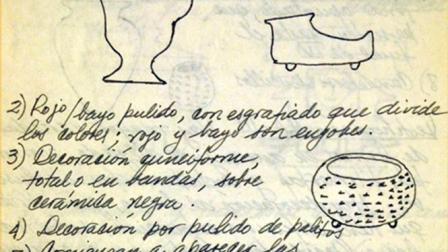 2) Rojo/bayo pulido, con esgrafiado que divide
los colores; rojo y bayo son engobes.
3) Decoración cuneiforme,
total o en bandas, sobre
cerámica negra.
4) Decoración por pulido de palitos
comienzan a aparecer las